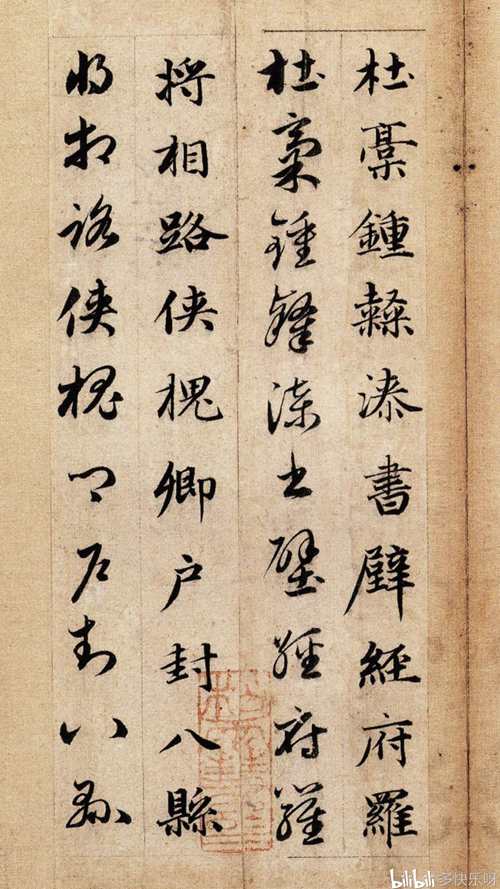 杜稾鍾隸漆書壁經府羅
杜稾鍾隸漆書壁經府羅
將相路俠槐卿户封八縣
將相路俠槐卿户封八縣
bilibili 多快乐呀